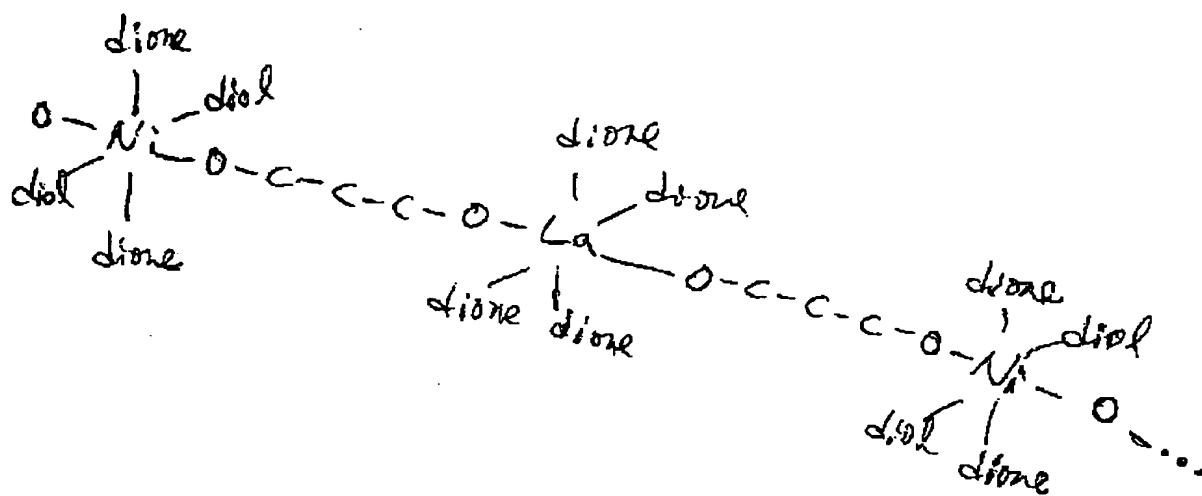 dione
O - Ni - diol
diol
dione
O - C - C - C - O - La - O - C - C - C - O - Ni - O ....
dione
dione
dione
dione
dione
diol
diol
dione